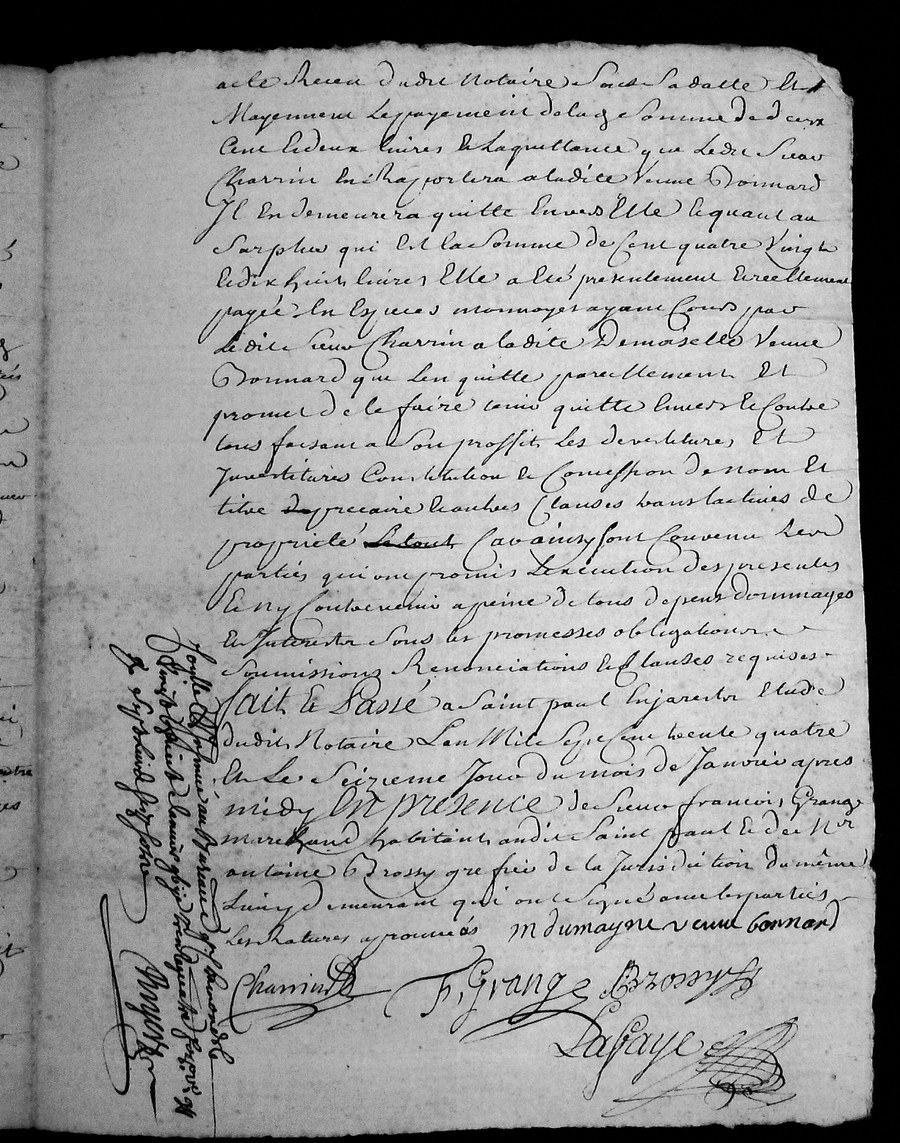 acte Receu dudit Notaire Sous Sa datte Et
Moyennent Le payement de lad.e Somme de deux
Cent Et deux livres Et La quittance que Ledit Sieur
Charrin En Raportera a ladite Veuve Bonnard
Jl En demeurera quitte Envers Elle Et quant au
Surplus qui Est la Somme de Cent quatre Vingt
Et dix huit livres Elle a Eté presentement Et reellement
payée En Especes monnoyes ayant Cours par
Ledit Sieur Charrin a ladite Demoiselle Veuve
Bonnard que Len quitte pareillement Et
promet de le faire tenir quitte Envers Et Contre
tous faisant a Son proffit Les devestitures Et
Jnvestitures Constitution Et Concession de nom Et
titre de precaire Et autres Clauses translactives de
propriété Le tout Car ainsy sont Convenu Les
parties qui ont promis Lexecution des presentes
Et ny Contrevenir a peine de tous depens dommages
Et Jnterests Sous les promesses obligations
Soumissions Renonciations Et Clauses requises
fait Et Passé a Saint paul En jarest Etude
dudit Notaire Lan Mil Sept Cent trente quatre
Et Le Seizieme Jour du mois de Janvier apres
midy En presence de Sieur françois Grang
marchand habitant audit Saint paul Et de Mr
antoine Brossy greffier de la Jurisdiction du même
Lieu y demeurant qui ont Signé avec les parties
Les Ratures aprouvées m dumayne veuve bonnard
Charrin
F, Grang Brossy
Lafaye